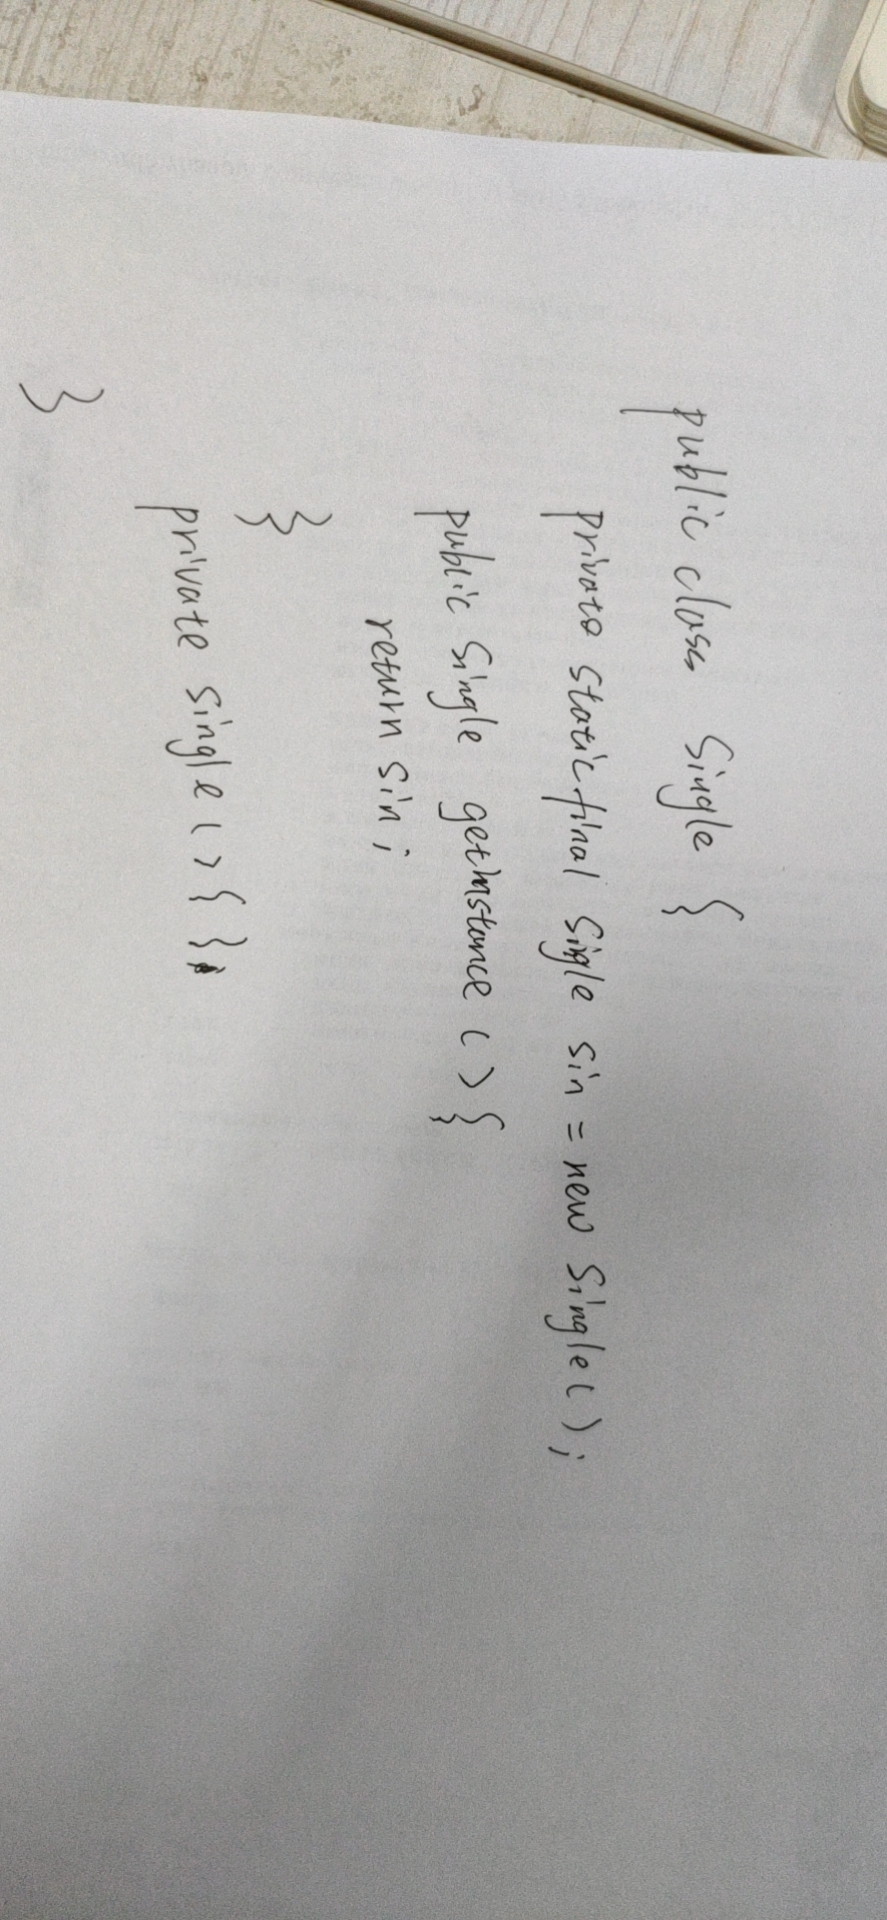 public class Single {
private static final Single sin = new Single();
public Single getinstance () {
return sin;
}
private single () { };
}